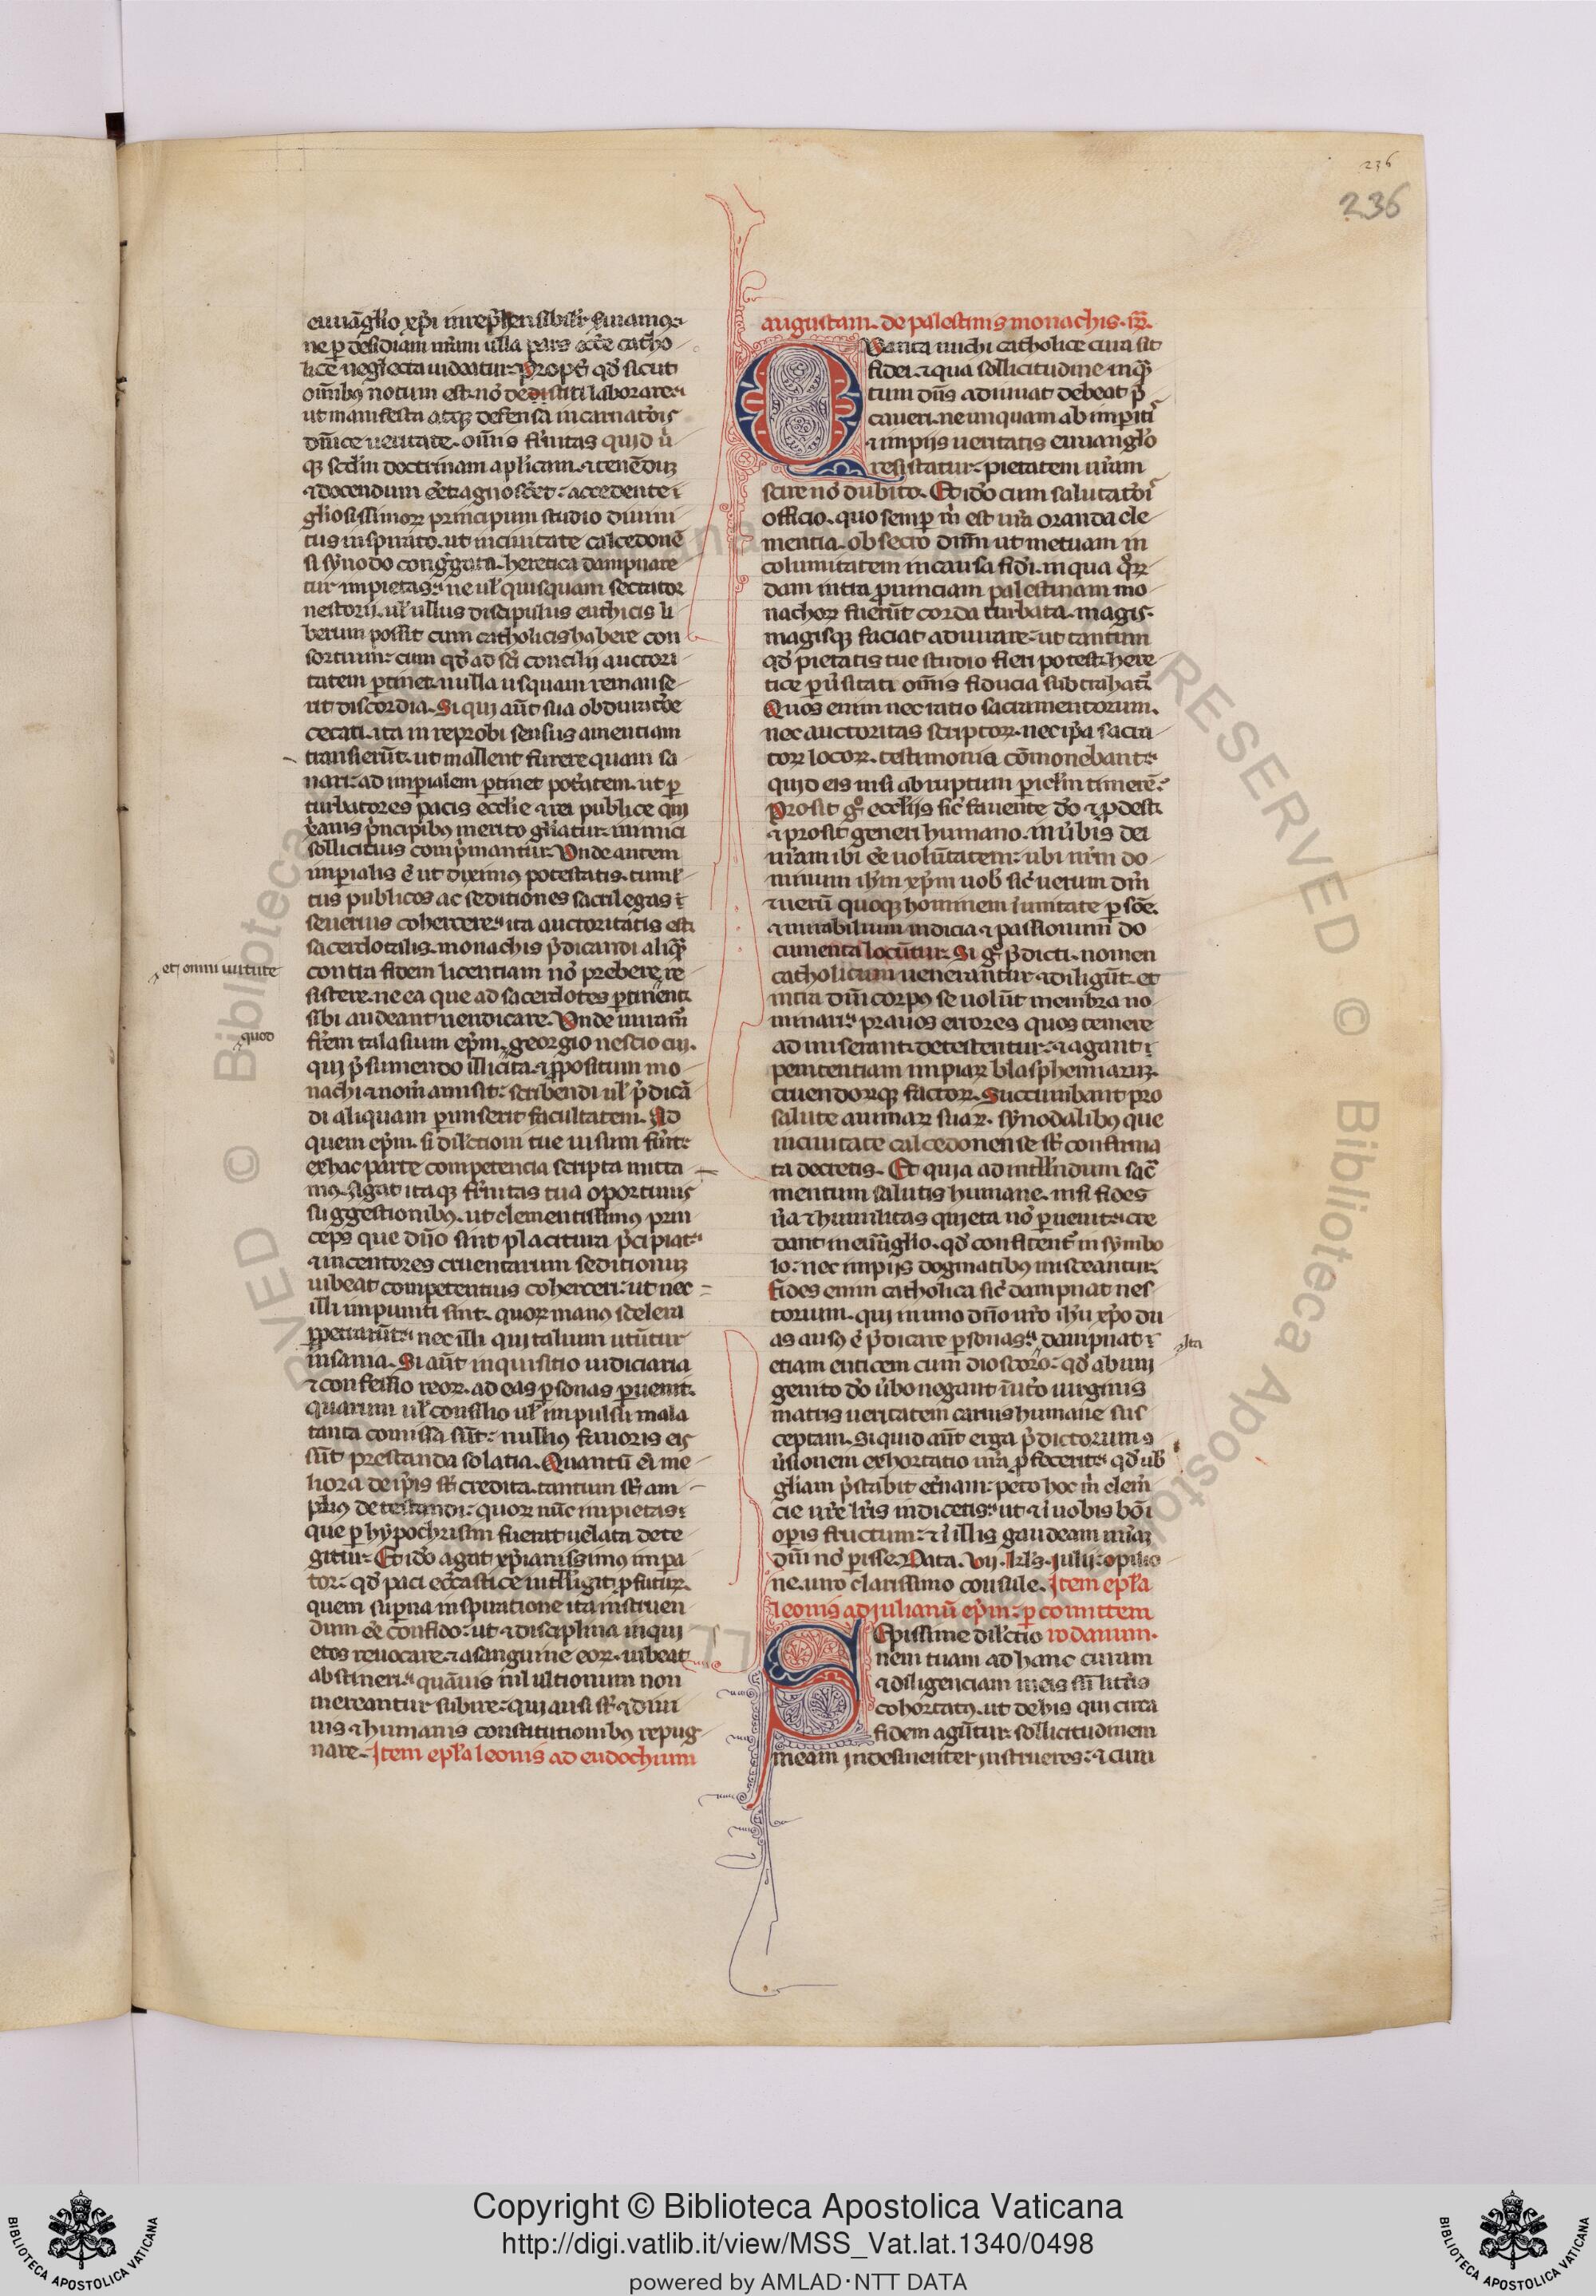 236
236
euuãglio xp̃i inrep̃hensibilit̃ ẜuiamus
ne ꝑ desidiam nr̃am ulla pars ecc̃e catho
lice neglecta uideatur. Propt̃ qd̃ sicut
om̃ibꝰ notum est. nõ dedistiti laborare.
ut manifesta atqꝫ defensa incarnatõis
dñice ueritate. om̃is fr̃nitas quid ũ
qꝫ scdm doctrinam ap̃licam. ⁊ tenẽduꝫ
⁊ docendum ẽet. agnosc̃et. accedente
gliosissimoꝝ principum studio diuini
tus inspirato. ut inciuitate calcedonẽ
si synodo cong̃gata. heretica dampnare
tur impietas. ne ul̃ quisquam sectator
nestorij. ul̃ ullus discipulus euthicis li
berum possit cum catholicis habere con
sortium. cum qd̃ ad sc̃i concilij auctori
tatem ꝑtinet. nulla usquam remanse
rit discordia. Si qui aũt sua obduratõe
cecati. ita in reprobi sensus amentiam
transierũt. ut mallent furere quam sa
nari. ad imꝑialem ꝑtinet potãtem. ut ꝑ
turbatores pacis ecclie ⁊ rei publice que
xp̃anis p̃ncipibꝰ merito gl̃iatur inimici
sollicitius comp̃mantur. Unde autem
imꝑialis ẽ ut diximꝰ potestatis. tumul̃
tus publicos ac seditiones sacrilegas
seuerius cohercere. ita auctoritatis est
sacerdotalis. monachis p̃dicandi aliqm̃
contra fidem licentiam nõ prebere. re
et omni uirtute
sistere. ne ea que ad sacerdotes ꝑtinent
sibi audeant uendicare. Unde miram̃
quod
fr̃em talasium ep̃m. georgio nescio cui.
qui p̃sumendo illicita. ⁊ ꝓpositum mo
nachi ⁊ nom̃ amisit. scribendi ul̃ p̃dicã
di aliquam ꝑmiserit facultatem. Ad
quem ep̃m. si dilctioni tue uisum fũit.
ex hac parte competencia scripta mitta
mꝰ. Agat itaqꝫ fr̃nitas tua oportunis
suggestionibꝰ. ut clementissimꝰ prin
ceps que dño sint placitura p̃cipiat.
⁊ incentores cruentarum seditionuꝫ
iubeat competentius coherceri. ut nec
illi impuniti sint. quoꝝ manꝰ scelera
ꝑpetrarũt. nec illi qui talium utũtur
insania. Si aũt inquisitio iudiciaria
⁊ confessio reoꝝ. ad eas ꝑsonas ꝑuenit.
quarum ul̃ consilio ul̃ impulsu mala
tanta comissa sũt. nullius fauoris eis
sũt prestanda solatia. Quantũ ei me
liora de ip̃is st̃ credita. tantum st̃ am
plius detestandi. quoꝝ nũc impietas
que ꝑ hypochrisim fuerat uelata dete
gitur. Et ido agat xp̃ianissimꝰ impa
tor. qd̃ paci eccãstice intll̃igit ꝓfuturꝫ
quem suꝑna inspiratione ita instruen
dum ẽe confido. ut ⁊ disciplina inqui
etos reuocare. ⁊ a sanguine eoꝝ iubeat
abstineri. quãuis nil ultionum non
mereantur subire. qui ausi st̃ ⁊ diui
nis ⁊ humanis constitutionibꝰ repug
nare. Item epl̃a leonis ad eudochium
augustam. de palestinis monachis.
Quanta michi catholice cura sit
fidei. ⁊ qua sollicitudine inqm̃
tum dñs adiuuat debeat p̃
caueri. ne unquam ab imꝑiti
⁊ impijs ueritatis euuanglo
resistatur. pietatem ur̃am
scire nõ dubito. Et ido cum salutatõi
officio. quo semꝑ m̃ est ur̃a oranda cle
mentia. obsecro dñm ut metuam in
columitatem in causa fidei. in qua q̃rũ
dam intra ꝓuinciam palestinam mo
nachoꝝ fuerũt corda turbata. magis.
magisqꝫ faciat adiuuare. ut tantum
qd̃ pietatis tue studio fieri potest. here
tice ꝑũsitati om̃is fiducia subtrahat̃.
Quos enim nec ratio sacramentorum.
nec auctoritas scriptoꝝ. nec ip̃a sacra
toꝝ locoꝝ. testimonia cõmonebant.
quid eis nisi abruptum picl̃m timerẽ.
Prosit g̊ eccliis sic̃ fauente do ⁊ ꝓdest.
⁊ prosit generi humano. in ũbis dei
ur̃am ibi ẽe uolũtatem. ubi nr̃m do
minum ihm̃ xp̃m uob̃ sic̃ uerum dm̃
⁊ uerũ quoqꝫ hominem ĩunitate ꝑsõe.
⁊ mirabilium indicia ⁊ passionum do
cumenta locũtur. Si g̊ p̃dicti. nomen
catholicum uenerantur. ⁊ diligũt. et
intra dñi corpꝰ se uolũt membra no
minari. prauos errores quos temere
admiserant. detestentur. ⁊ agant
penitentiam impiaꝝ blasphemiaruꝫ.
cruendorqꝫ factoꝝ. Succumbant pro
salute animaꝝ suaꝝ. synodalibꝰ que
inciuitate calcedonense st̃ confirma
ta decretis. Et quia ad intll̃ndum sac̃
mentum salutis humane. nisi fides
ũa ⁊ humilitas quieta nõ ꝑuenit. cre
dant in euũglio. qd̃ confitent̃ in symbo
lo. nec impijs dogmatibꝰ misceantur.
Fides enim catholica sic̃ dampnat nes
torum. qui in uno dño nr̃o ihu xp̃o du
as ausꝰ ẽ p̃dicare ꝑsonas. dampnat
ita
etiam euticem cum dioscoro. qd̃ ab uni
genito do ũbo negant ĩut̃o uirginis
matris ueritatem carnis humane sus
ceptam. Si quid aũt erga p̃dictorum
ũsionem exhortatio ur̃a ꝓfecerit. qd̃ uob̃
gl̃iam p̃stabit et̃nam. peto hoc m̃ clem̃
cie ur̃e lr̃is indicetis. ut ⁊ ĩ uobis bõi
oꝑis fructum. ⁊ ĩ illis gaudeam mĩaꝫ
dñi nõ ꝑisse. Data. vij. kl̃s. Iulij. opilio
ne. uiro clarissimo consule. Item epl̃a
leonis ad iulianũ ep̃m. ꝑ comitem
Sepissime dilctio rodanum.
nem tuam ad hanc curam
⁊ diligenciam meis sũ litt̃is
cohortatꝰ. ut de his qui circa
fidem agũtur. sollicitudinem
meam indesinenter instrueres. ⁊ cum
Copyright © Biblioteca Apostolica Vaticana
http://digi.vatlib.it/view/MSS_Vat.lat.1340/0498
powered by AMLAD·NTT DATA
BIBLIOTECA APOSTOLICA VATICANA
BIBLIOTECA APOSTOLICA VATICANA